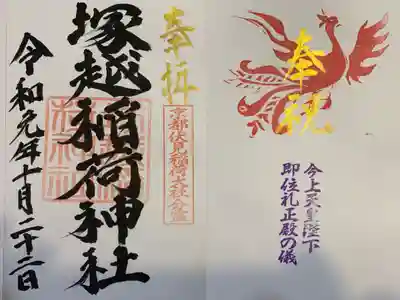 奉祝
今上天皇陛下
即位礼正殿の儀
奉拝
京都伏見稲荷大社分霊
塚越稲荷神社
令和元年十月二十二日